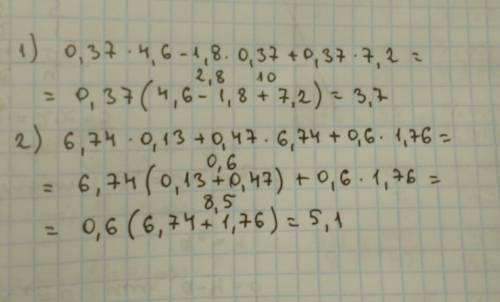 1) 0,37 · 4,6 - 1,8 · 0,37 + 0,37 · 7,2 =
2,8 10
= 0,37 ( 4,6 - 1,8 + 7,2 ) = 3,7
2) 6,74 · 0,13 + 0,47 · 6,74 + 0,6 · 1,76 =
0,6
= 6,74 ( 0,13 + 0,47 ) + 0,6 · 1,76 =
8,5
= 0,6 ( 6,74 + 1,76 ) = 5,1